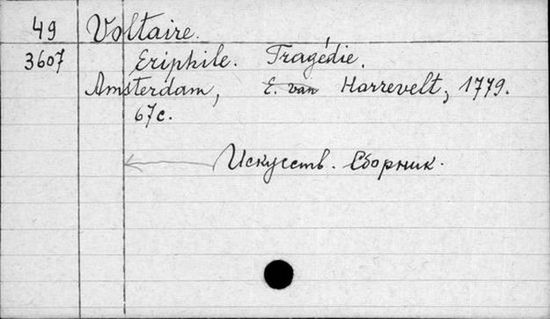 49 Voltaire.
3607 Eriphile. Tragédie.
Amsterdam, E. van Harrevelt, 1779.
67с.
Искусств. Сборник.